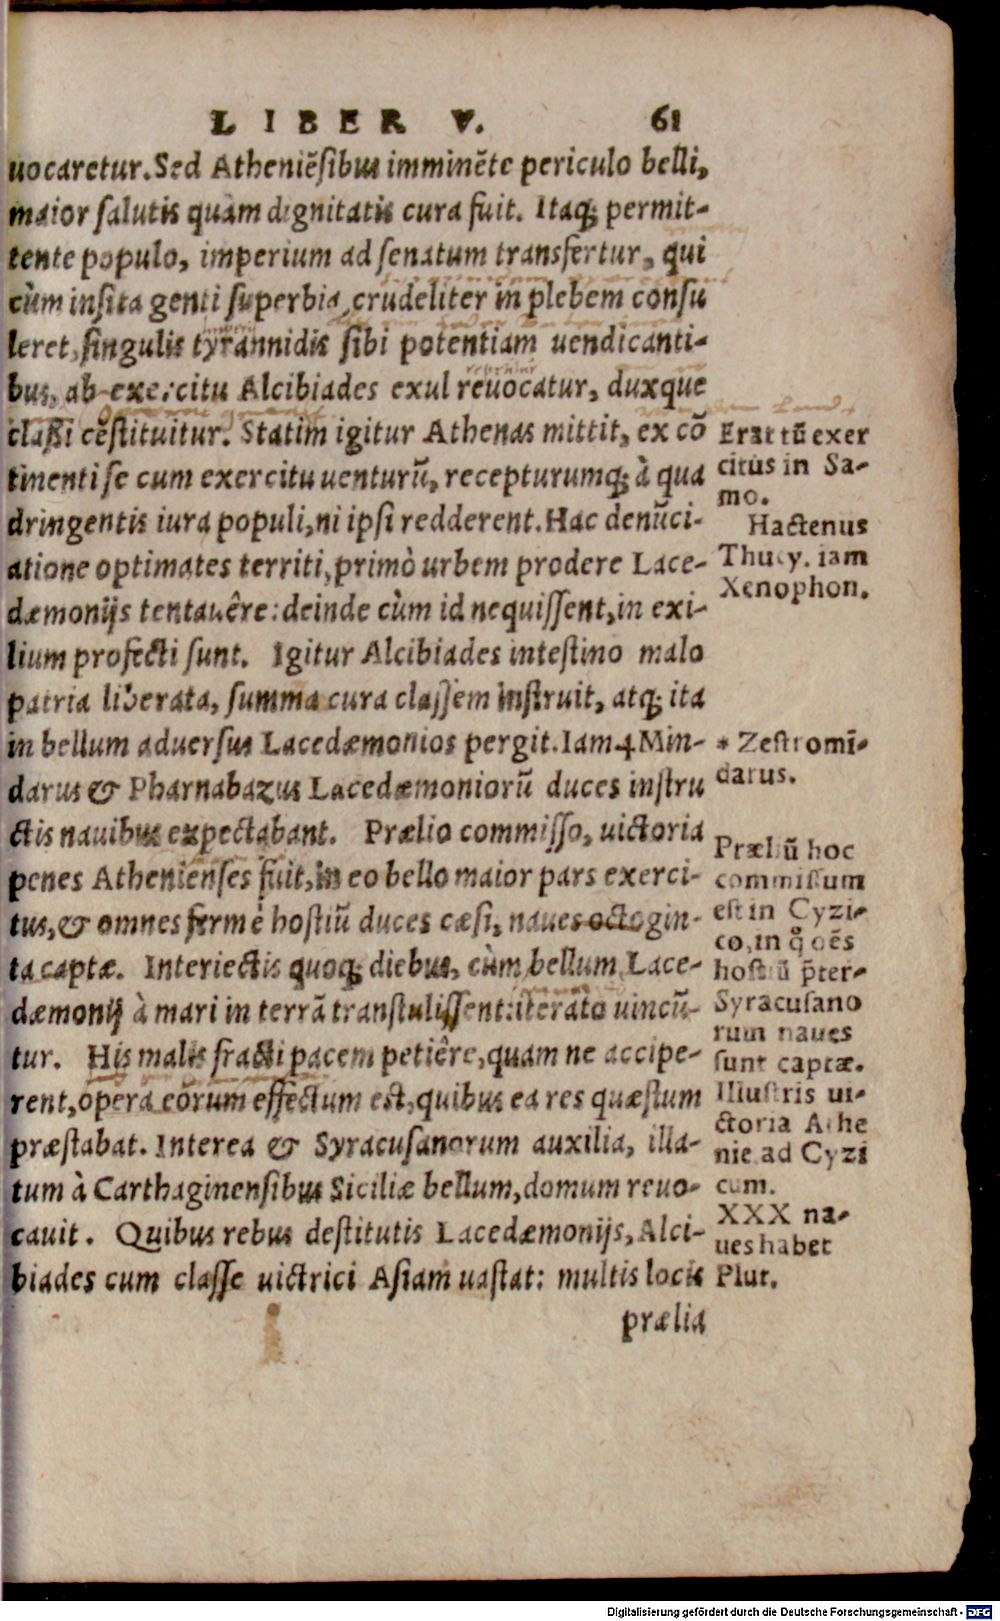 LIBER V. 61
uocaretur. Sed Atheniẽsibus imminẽte periculo belli,
maior salutis quam dignitatis cura fuit. Itaq; permit-
tente populo, imperium ad senatum transfertur, qui
cùm insita genti superbia crudeliter in plebem consu
leret, singulis tyrannidis sibi potentiam uendicanti-
bus, ab exercitu Alcibiades exul reuocatur, duxque
classi cõstituitur. Statim igitur Athenas mittit, ex cõ
tinenti se cum exercitu uenturũ, recepturumq; à qua
dringentis iura populi, ni ipsi redderent. Hac denũci-
atione optimates territi, primò urbem prodere Lace-
dæmonijs tentauêre: deinde cùm id nequissent, in exi-
lium profecti sunt. Igitur Alcibiades intestino malo
patria liberata, summa cura classem instruit, atq; ita
in bellum aduersus Lacedæmonios pergit. Iam Min-
darus & Pharnabazus Lacedæmoniorũ duces instru
ctis nauibus expectabant. Prælio commisso, uictoria
penes Athenienses fuit, in eo bello maior pars exerci-
tus, & omnes fermè hostiũ duces cæsi, naues octogin-
ta captæ. Interiectis quoq; diebus, cùm bellum Lace-
dæmonij à mari in terrã transtulissent: iterato uincũ-
tur. His malis fracti pacem petiêre, quam ne accipe-
rent, opera eorum effectum est, quibus ea res quæstum
præstabat. Interea & Syracusanorum auxilia, illa-
tum à Carthaginensibus Siciliæ bellum, domum reuo-
cauit. Quibus rebus destitutis Lacedæmonijs, Alci-
biades cum classe uictrici Asiam uastat: multis locis
prælia
Erãt tũ exer
citus in Sa-
mo.
Hactenus
Thucy. iam
Xenophon.
* Zestromĩ-
darus.
Præliũ hoc
commissum
est in Cyzi-
co, in q̊ oẽs
hostiũ p̃ter-
Syracusano
rum naues
sunt captæ.
Illustris ui-
ctoria Athe
niẽ. ad Cyzi
cum.
XXX na-
ues habet
Plut.
Digitalisierung gefördert durch die Deutsche Forschungsgemeinschaft - DFG